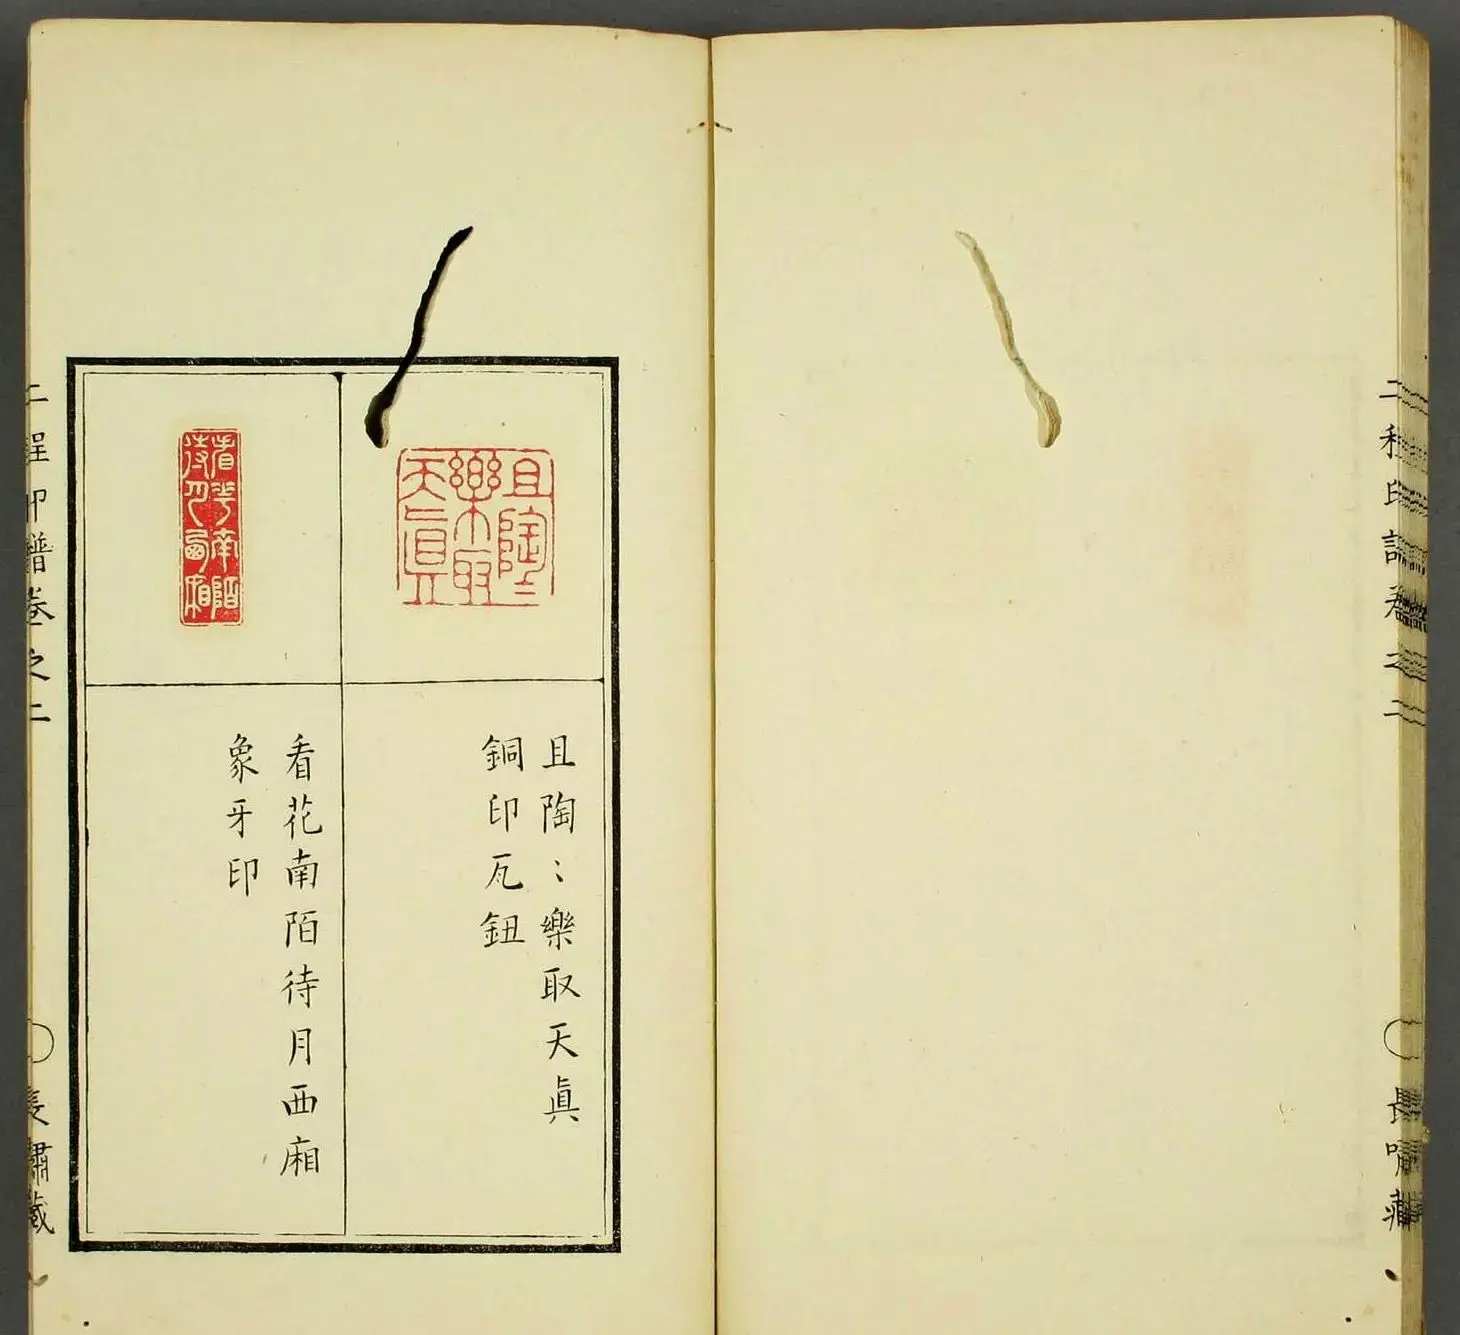 二程印譜卷之二
長嘯藏
且陶〻樂取天眞
銅印瓦鈕
看花南陌待月西廂
象牙印
且陶〻樂取天眞
看花南陌待月西廂
二程印譜卷之二
長嘯藏